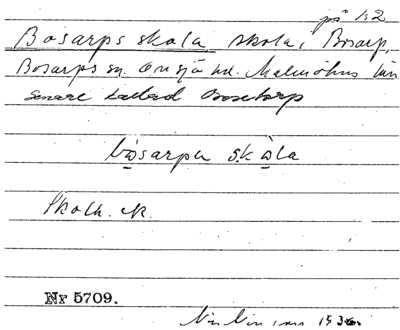 på 132
Bosarps skola, skola i Bosarp,
Bosarps sn. Onsjö hd. Malmöhus län
Senare kallad
bosarpa skola
Skolk. ek.
Nr 5709.
1536.